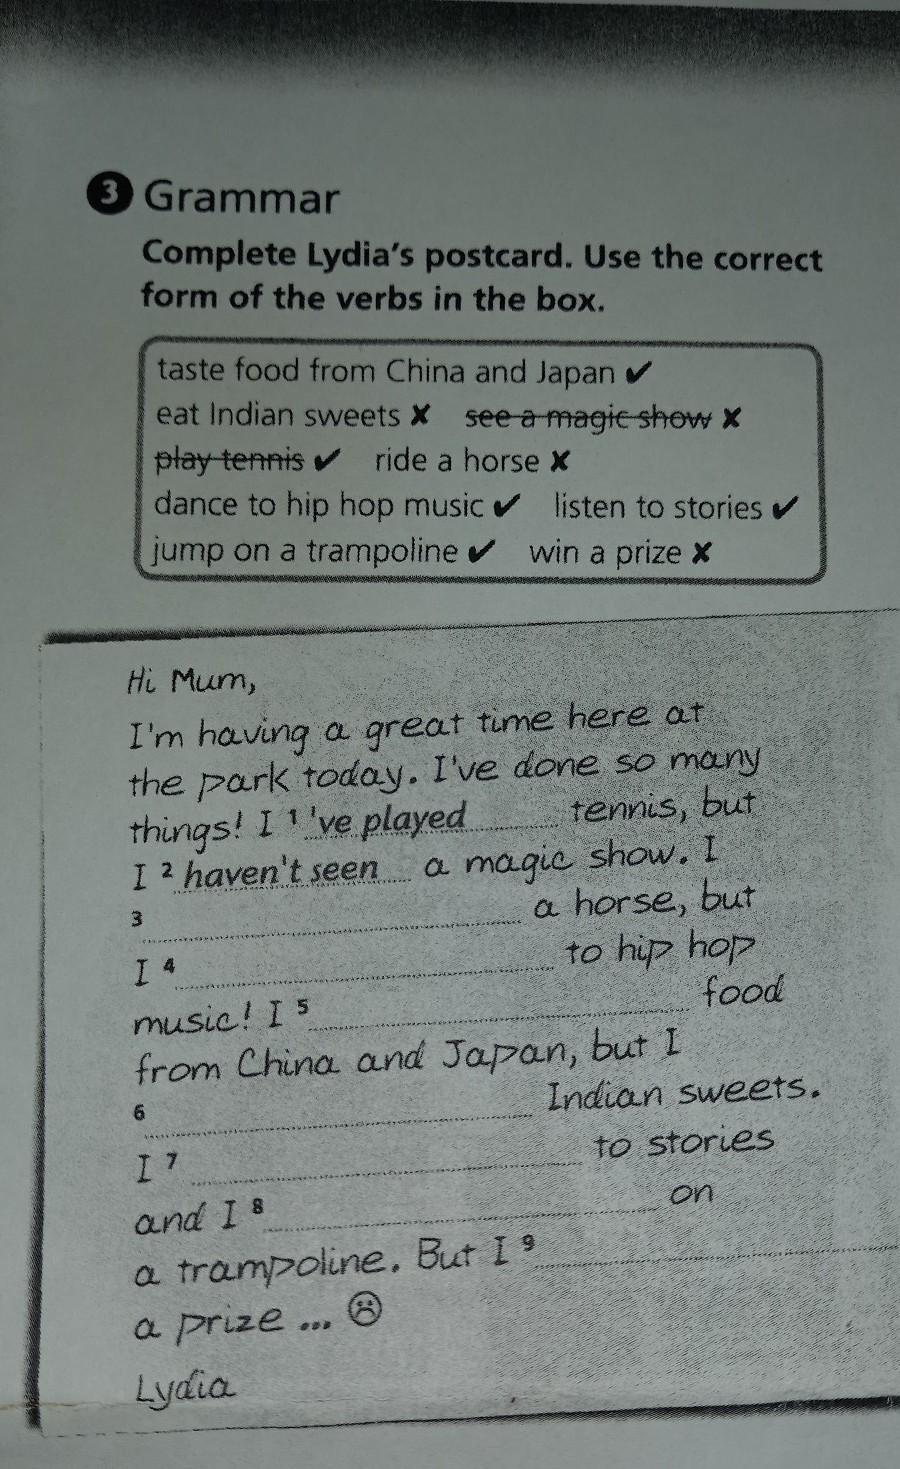 3 Grammar
Complete Lydia's postcard. Use the correct
form of the verbs in the box.
taste food from China and Japan ✔
eat Indian sweets ✘ see a magic show ✘
play tennis ✔ ride a horse ✘
dance to hip hop music ✔ listen to stories ✔
jump on a trampoline ✔ win a prize ✘
Hi Mum,
I'm having a great time here at
the park today. I've done so many
things! I 1 've played tennis, but
I 2 haven't seen a magic show. I
3 a horse, but
I 4 to hip hop
music! I 5 food
from China and Japan, but I
6 Indian sweets.
I 7 to stories
and I 8 on
a trampoline. But I 9
a prize ... ☹
Lydia